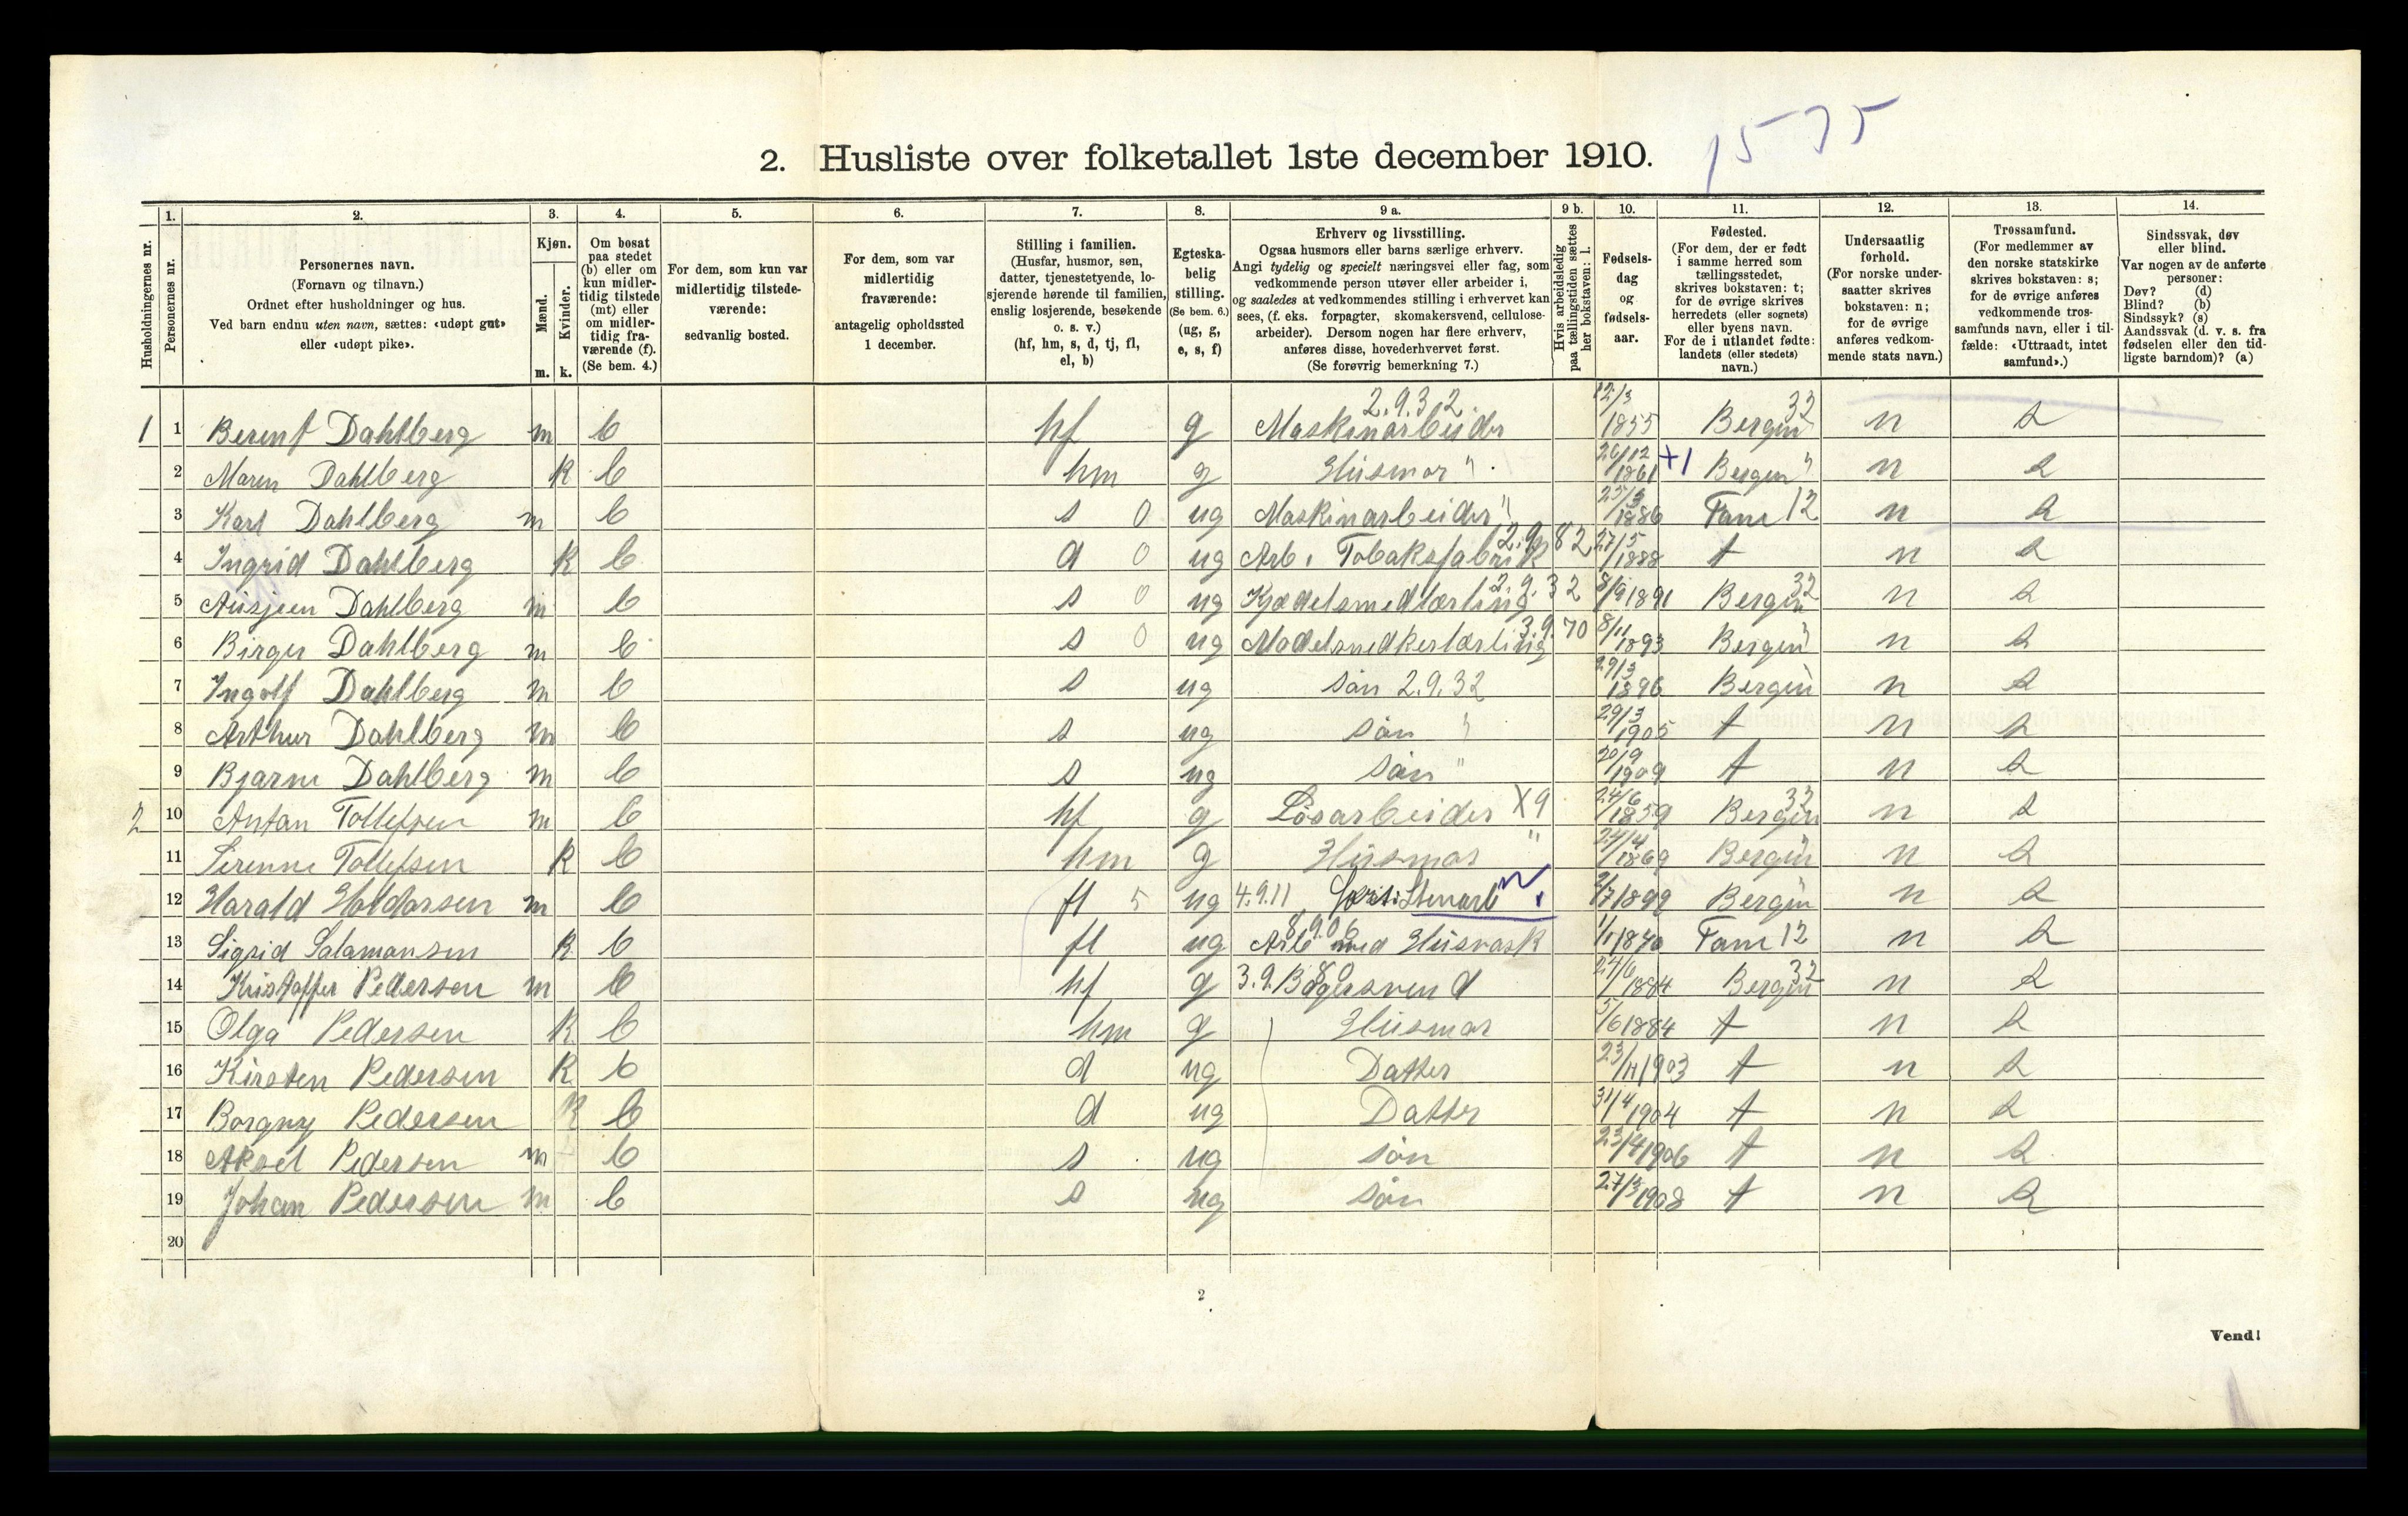 1575
2. Husliste over folketallet 1ste december 1910.
1. 2. 3. 4. 5. 6. 7. 8. 9 a. 9 b. 10. 11. 12. 13. 14.
Husholdningernes nr.
Personernes nr.
Personernes navn.
(Fornavn og tilnavn.)
Ordnet efter husholdninger og hus.
Ved barn endnu uten navn, sættes: «udøpt gut»
eller «udøpt pike».
Kjøn.
Mænd.
Kvinder.
m. k.
Om bosat
paa stedet
(b) eller om
kun midler-
tidig tilstede
(mt) eller
om midler-
tidig fra-
værende (f).
(Se bem. 4.)
For dem, som kun var
midlertidig tilstede-
værende:
sedvanlig bosted.
For dem, som var
midlertidig
fraværende:
antagelig opholdssted
1 december.
Stilling i familien.
(Husfar, husmor, søn,
datter, tjenestetyende, lo-
sjerende hørende til familien,
enslig losjerende, besøkende
o. s. v.)
(hf, hm, s, d, tj, fl,
el, b)
Egteska-
belig
stilling.
(Se bem. 6.)
(ug, g,
e, s, f)
Erhverv og livsstilling.
Ogsaa husmors eller barns særlige erhverv.
Angi tydelig og specielt næringsvei eller fag, som
vedkommende person utøver eller arbeider i,
og saaledes at vedkommendes stilling i erhvervet kan
sees, (f. eks. forpagter, skomakersvend, cellulose-
arbeider). Dersom nogen har flere erhverv,
anføres disse, hovederhvervet først.
(Se forøvrig bemerkning 7.)
Hvis arbeidsledig
paa tællingstiden sættes
her bokstaven: l.
Fødsels-
dag
og
fødsels-
aar.
Fødested.
(For dem, der er født
i samme herred som
tællingsstedet,
skrives bokstaven: t;
for de øvrige skrives
herredets (eller sognets)
eller byens navn.
For de i utlandet fødte:
landets (eller stedets)
navn.)
Undersaatlig
forhold.
(For norske under-
saatter skrives
bokstaven: n;
for de øvrige
anføres vedkom-
mende stats navn.)
Trossamfund.
(For medlemmer av
den norske statskirke
skrives bokstaven: s;
for de øvrige anføres
vedkommende tros-
samfunds navn, eller i til-
fælde: «Uttraadt, intet
samfund».)
Sindssvak, døv
eller blind.
Var nogen av de anførte
personer:
Døv? (d)
Blind? (b)
Sindssyk? (s)
Aandssvak (d. v. s. fra
fødselen eller den tid-
ligste barndom)? (a)
1 1 Berent Dahlberg m b hf g Maskinarbeider 2.9.32 12/3 1855 Bergen 32 n s
2 Maren Dahlberg k b hm g Husmor " 26/12 1861 +1 Bergen " n s
3 Karl Dahlberg m b s 0 ug Maskinarbeider " 25/3 1886 Fane 12 n s
4 Ingrid Dahlberg k b d 0 ug Arb. i Tobaksfabrik 2.9.82 27/5 1888 t n s
5 Dahlberg m b s 0 ug Kjedelsmedlærling 2.9.32 8/9 1891 Bergen 32 n s
6 Birger Dahlberg m b s 0 ug Modelsnedkerlærling 3.9.70 8/11 1893 Bergen " n s
7 Ingolf Dahlberg m b s ug søn 2.9.32 29/3 1896 Bergen " n s
8 Arthur Dahlberg m b s ug søn " 29/3 1905 t n s
9 Bjarne Dahlberg m b s ug søn " 20/9 1909 t n s
2 10 Anton Tollefsen m b hf g Løsarbeider X9 24/6 1859 Bergen 32 n s
11 Serenne Tollefsen k b hm g Husmor " 24/4 1869 Bergen " n s
12 Harald Haldorsen m b fl 5 ug 4.9.11 Stenarb. 2/7 1899 Bergen " n s
13 Sigrid Salamonsen k b fl ug Arb. med Husvask 8.9.06 1/1 1840 Fane 12 n s
14 Kristoffer Pedersen m b hf g 3.9.80 Bagersvend 24/6 1884 Bergen 32 n s
15 Olga Pedersen k b hm g Husmor 5/6 1884 t n s
16 Kirsten Pedersen k b d ug Datter 23/11 1903 t n s
17 Borgny Pedersen k b d ug Datter 31/4 1904 t n s
18 Aksel Pedersen m b s ug søn 23/4 1906 t n s
19 Johan Pedersen m b s ug søn 27/3 1908 t n s
20
2
Vend!